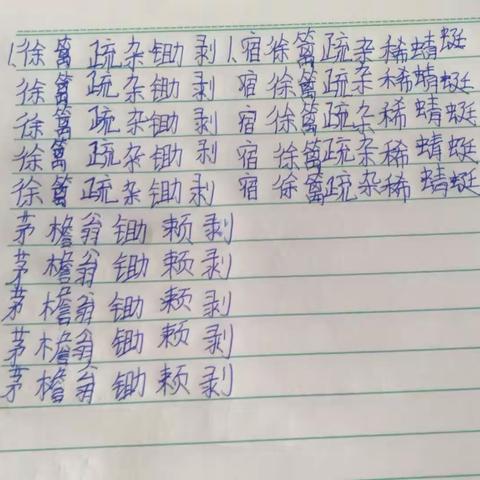 1.徐篱疏杂锄剥 1.宿徐篱疏杂稀蜻蜓
徐篱疏杂锄剥 宿徐篱疏杂稀蜻蜓
徐篱疏杂锄剥 宿徐篱疏杂稀蜻蜓
徐篱疏杂锄剥 宿徐篱疏杂稀蜻蜓
徐篱疏杂锄剥 宿徐篱疏杂稀蜻蜓
茅檐翁锄赖剥
茅檐翁锄赖剥
茅檐翁锄赖剥
茅檐翁锄赖剥
茅檐翁锄赖剥